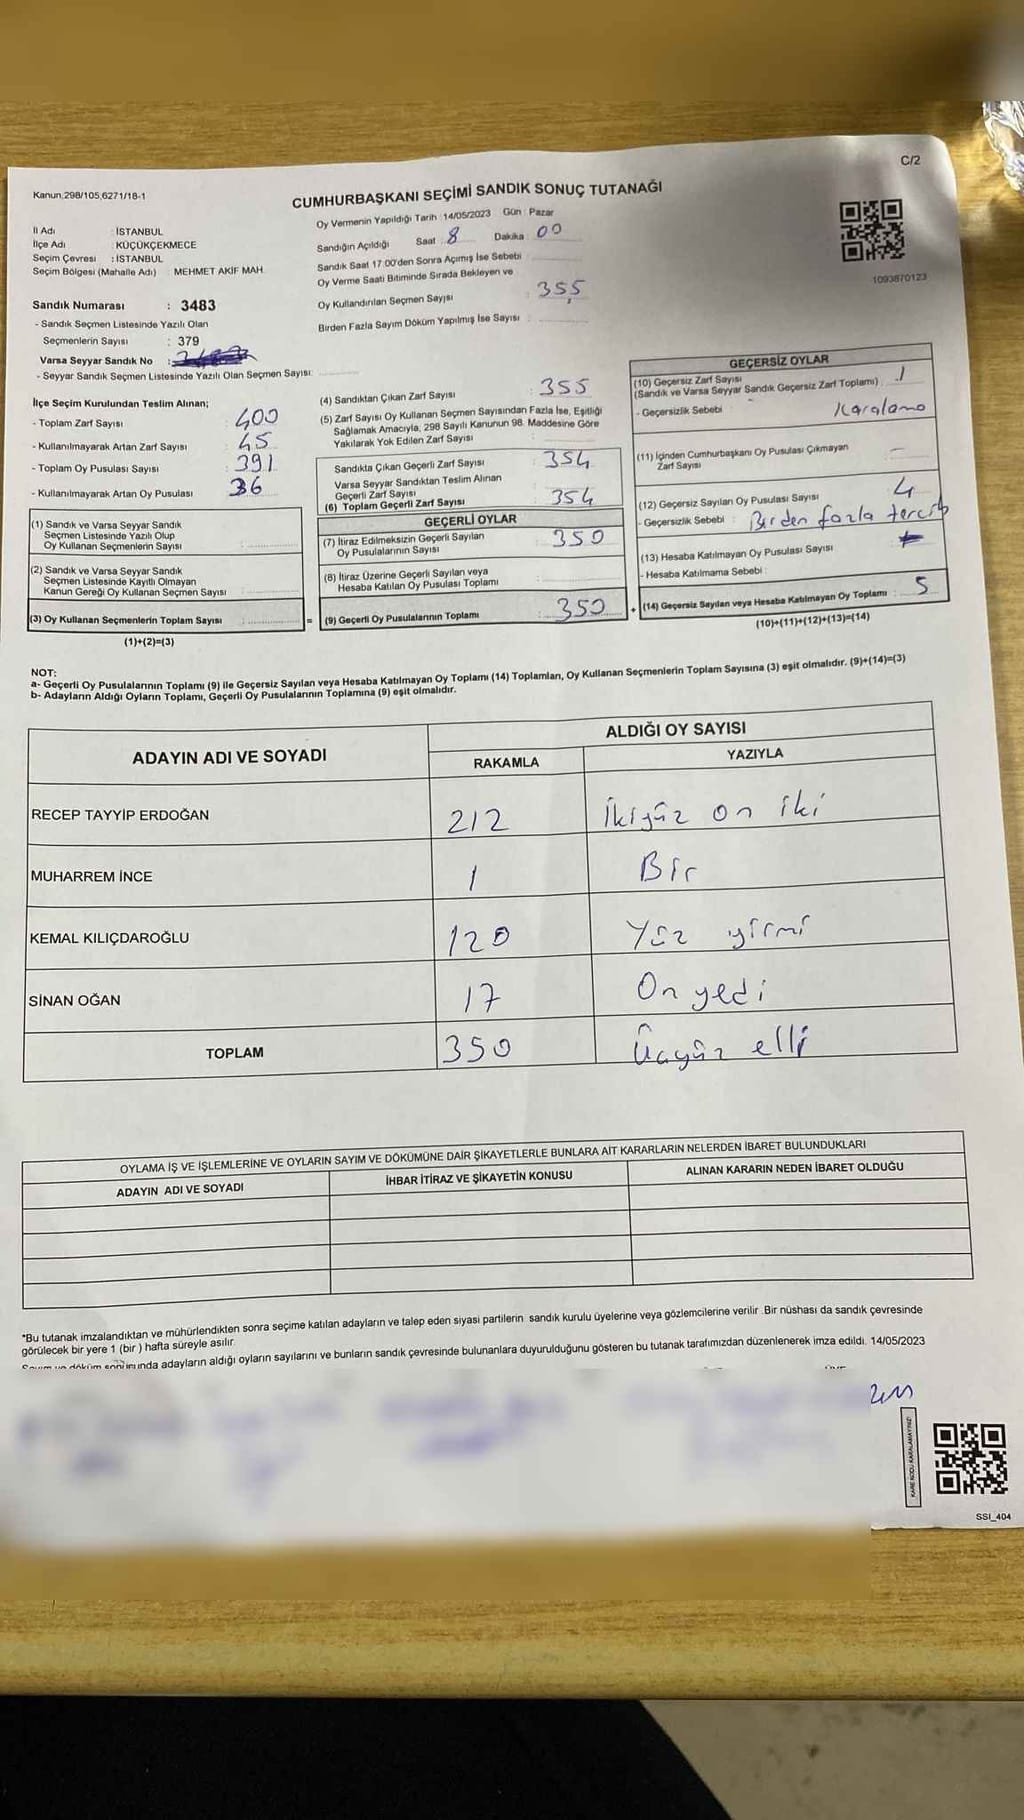 C/2
Kanun.298/105,6271/18-1
CUMHURBAŞKANI SEÇİMİ SANDIK SONUÇ TUTANAĞI
İl Adı : İSTANBUL
İlçe Adı : KÜÇÜKÇEKMECE
Seçim Çevresi : İSTANBUL
Seçim Bölgesi (Mahalle Adı) : MEHMET AKİF MAH.
Oy Vermenin Yapıldığı Tarih : 14/05/2023 Gün : Pazar
Sandığın Açıldığı Saat : 8 Dakika : 00
Sandık Saat 17:00'den Sonra Açımış İse Sebebi :
Oy Verme Saati Bitiminde Sırada Bekleyen ve
Oy Kullandırılan Seçmen Sayısı : 355
Birden Fazla Sayım Döküm Yapılmış İse Sayısı :
1093870123
Sandık Numarası : 3483
- Sandık Seçmen Listesinde Yazılı Olan
Seçmenlerin Sayısı : 379
Varsa Seyyar Sandık No :
- Seyyar Sandık Seçmen Listesinde Yazılı Olan Seçmen Sayısı:
İlçe Seçim Kurulundan Teslim Alınan;
- Toplam Zarf Sayısı : 400
- Kullanılmayarak Artan Zarf Sayısı : 45
- Toplam Oy Pusulası Sayısı : 391
- Kullanılmayarak Artan Oy Pusulası : 36
(1) Sandık ve Varsa Seyyar Sandık
Seçmen Listesinde Yazılı Olup
Oy Kullanan Seçmenlerin Sayısı :
(2) Sandık ve Varsa Seyyar Sandık
Seçmen Listesinde Kayıtlı Olmayan
Kanun Gereği Oy Kullanan Seçmen Sayısı :
(3) Oy Kullanan Seçmenlerin Toplam Sayısı :
(1)+(2)=(3)
(4) Sandıktan Çıkan Zarf Sayısı : 355
(5) Zarf Sayısı Oy Kullanan Seçmen Sayısından Fazla İse, Eşitliği
Sağlamak Amacıyla, 298 Sayılı Kanunun 98. Maddesine Göre
Yakılarak Yok Edilen Zarf Sayısı :
Sandıkta Çıkan Geçerli Zarf Sayısı : 354
Varsa Seyyar Sandıktan Teslim Alınan
Geçerli Zarf Sayısı :
(6) Toplam Geçerli Zarf Sayısı : 354
GEÇERLİ OYLAR
(7) İtiraz Edilmeksizin Geçerli Sayılan
Oy Pusulalarının Sayısı : 350
(8) İtiraz Üzerine Geçerli Sayılan veya
Hesaba Katılan Oy Pusulası Toplamı :
= (9) Geçerli Oy Pusulalarının Toplamı : 350
GEÇERSİZ OYLAR
(10) Geçersiz Zarf Sayısı
(Sandık ve Varsa Seyyar Sandık Geçersiz Zarf Toplamı) : 1
- Geçersizlik Sebebi : Karalama
(11) İçinden Cumhurbaşkanı Oy Pusulası Çıkmayan
Zarf Sayısı : -
(12) Geçersiz Sayılan Oy Pusulası Sayısı : 4
- Geçersizlik Sebebi : Birden fazla tercih
(13) Hesaba Katılmayan Oy Pusulası Sayısı :
- Hesaba Katılmama Sebebi :
+ (14) Geçersiz Sayılan veya Hesaba Katılmayan Oy Toplamı : 5
(10)+(11)+(12)+(13)=(14)
NOT:
a- Geçerli Oy Pusulalarının Toplamı (9) ile Geçersiz Sayılan veya Hesaba Katılmayan Oy Toplamı (14) Toplamları, Oy Kullanan Seçmenlerin Toplam Sayısına (3) eşit olmalıdır. (9)+(14)=(3)
b- Adayların Aldığı Oyların Toplamı, Geçerli Oy Pusulalarının Toplamına (9) eşit olmalıdır.
ADAYIN ADI VE SOYADI ALDIĞI OY SAYISI
RAKAMLA YAZIYLA
RECEP TAYYİP ERDOĞAN 212 İkiyüz on iki
MUHARREM İNCE 1 Bir
KEMAL KILIÇDAROĞLU 120 Yüz yirmi
SİNAN OĞAN 17 On yedi
TOPLAM 350 Üçyüz elli
OYLAMA İŞ VE İŞLEMLERİNE VE OYLARIN SAYIM VE DÖKÜMÜNE DAİR ŞİKAYETLERLE BUNLARA AİT KARARLARIN NELERDEN İBARET BULUNDUKLARI
ADAYIN ADI VE SOYADI İHBAR İTİRAZ VE ŞİKAYETİN KONUSU ALINAN KARARIN NEDEN İBARET OLDUĞU
*Bu tutanak imzalandıktan ve mühürlendikten sonra seçime katılan adayların ve talep eden siyasi partilerin sandık kurulu üyelerine veya gözlemcilerine verilir. Bir nüshası da sandık çevresinde
görülecek bir yere 1 (bir) hafta süreyle asılır.
Sayım ve döküm sonucunda adayların aldığı oyların sayılarını ve bunların sandık çevresinde bulunanlara duyurulduğunu gösteren bu tutanak tarafımızdan düzenlenerek imza edildi. 14/05/2023
KARE KODU KARALAMAYINIZ!
SSI_404